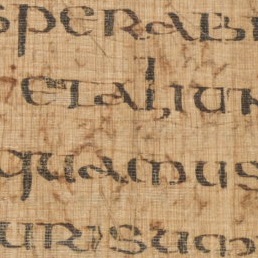 SPERABI
ETALIUM
QUAMUS
URISUM